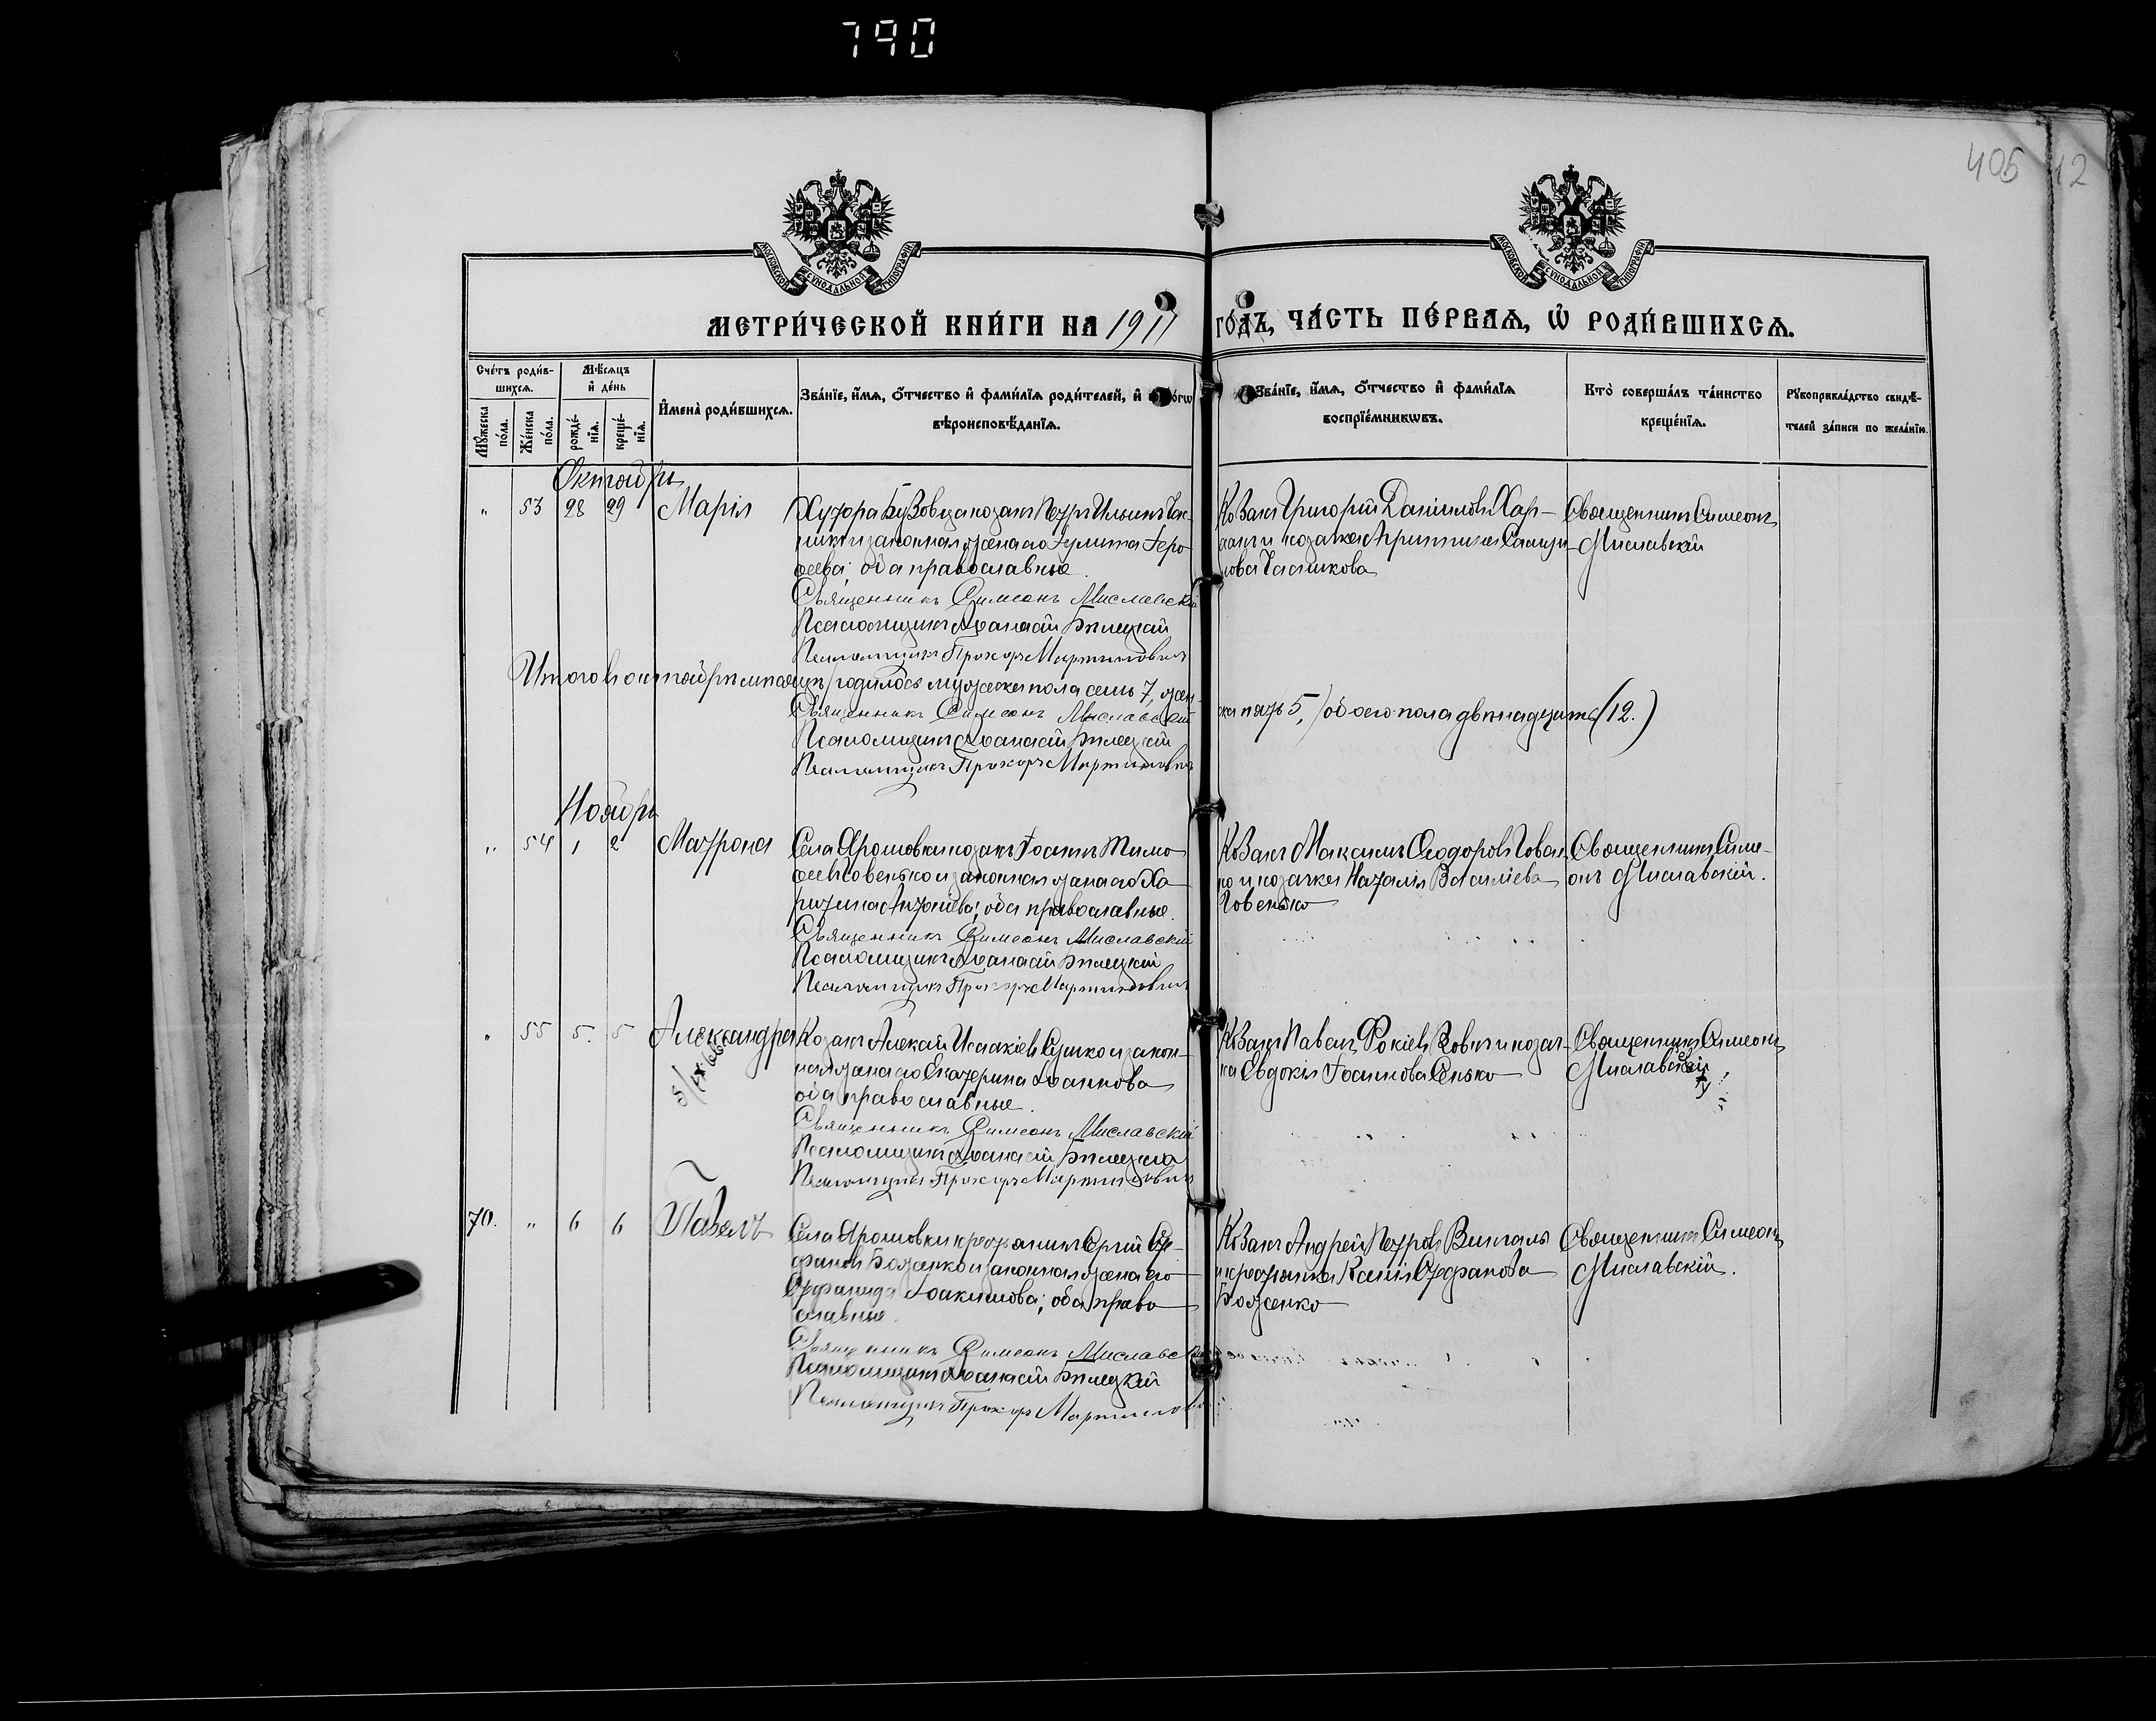 790
405 12
МОСКОВСКОЙ СѴНОДАЛЬНОЙ ТИПОГРАФІИ
МОСКОВСКОЙ СѴНОДАЛЬНОЙ ТИПОГРАФІИ
МЕТРИ́ЧЕСКОЙ КНИ́ГИ НА 1911 ГО́ДЪ, ЧА́СТЬ ПЕ́РВАЯ, Ѡ РОДИ́ВШИХСЯ.
Сче́тъ роди́в-
шихся.
Мѣ́сяцъ
и де́нь
Му́жеска по́ла.
Же́нска по́ла.
рожде́-нїя.
креще́-нїя.
Имена̀ роди́вшихся.
Зва́нїе, и́мя, о́тчество и фами́лїя роди́телей, и
вѣроисповѣ́данїя.
Зва́нїе, и́мя, о́тчество и фами́лїя
воспрїе́мникѡвъ.
Кто̀ соверша́лъ та́инство
креще́нїя.
Рукоприкла́дство свидѣ́-
телей за́писи по жела́нїю.
Октябрь
" 53 28 29 Марія
Хутора козакъ Петръ Ильинъ
и законная жена его Гликерія
; оба православные.
Священникъ Симеонъ Миславскій
Псаломщикъ Аѳанасій Билецкій
Псаломщикъ Прохоръ Мартиновичъ
Козакъ Григорій Даніиловъ Хар-
и козачка
Священникъ Симеонъ
Миславскій
Итого въ октябрѣ мѣсяцѣ родилось мужеска пола семь 7, жен-
ска пять 5, обоего пола двѣнадцать (12.)
Священникъ Симеонъ Миславскій
Псаломщикъ Аѳанасій Билецкій
Псаломщикъ Прохоръ Мартиновичъ
Ноябрь
" 54 1 2 Матрона
Села Ярошовки козакъ Іоаннъ Тимо-
и законная жена его Ха-
ритина ; оба православные.
Священникъ Симеонъ Миславскій
Псаломщикъ Аѳанасій Билецкій
Псаломщикъ Прохоръ Мартиновичъ
Козакъ Максимъ Ѳеодоровъ
и козачка Наталія Василіева
Говенько
Священникъ Симе-
онъ Миславскій.
" 55 5. 5 Александра
Козакъ Алексій Исаакіевъ Сушко и закон-
ная жена его Екатерина Іоаннова
оба православные.
Священникъ Симеонъ Миславскій
Псаломщикъ Аѳанасій Билецкій
Псаломщикъ Прохоръ Мартиновичъ
Козакъ Павелъ Фокіевъ и козач-
ка Евдокія Іоаннова Сенько
Священникъ Симеонъ
Миславскій
70. " 6 6 Павелъ
Села Ярошовки крестьянинъ Сергій Сте-
фановъ Боженко и законная жена его
Іоакимова; оба право-
славные.
Священникъ Симеонъ Миславскій
Псаломщикъ Аѳанасій Билецкій
Псаломщикъ Прохоръ Мартиновичъ
Козакъ Андрей Петровъ
и крестьянка Ксенія Стефанова
Боженко
Священникъ Симеонъ
Миславскій.